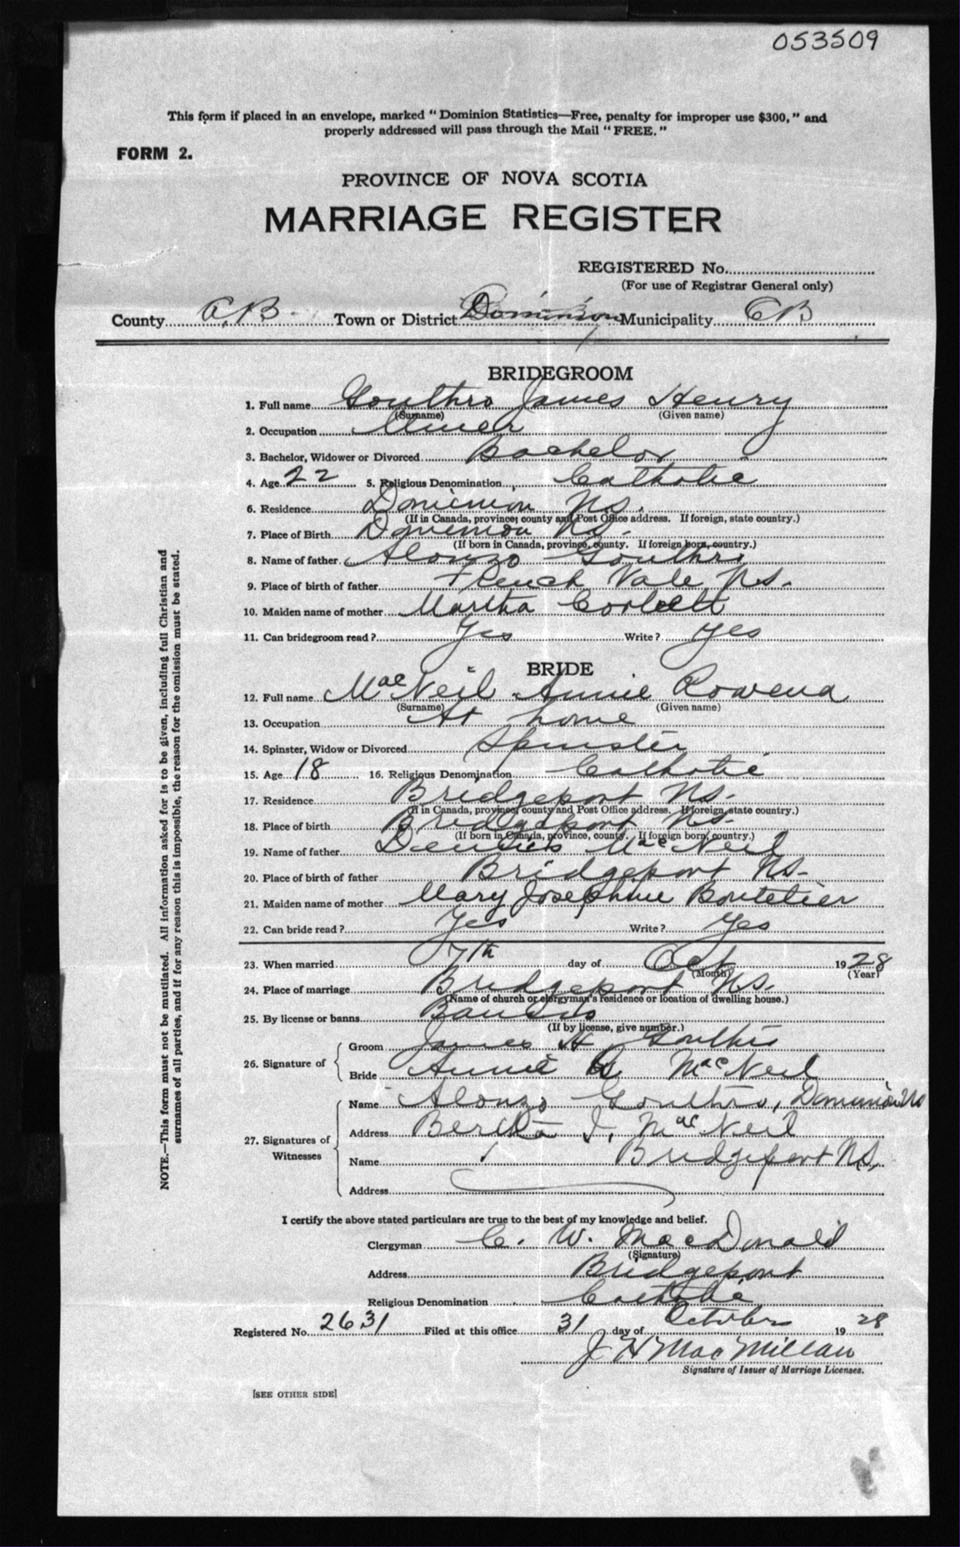 053509
This form if placed in an envelope, marked "Dominion Statistics—Free, penalty for improper use $300," and
properly addressed will pass through the Mail "FREE."
FORM 2.
PROVINCE OF NOVA SCOTIA
MARRIAGE REGISTER
REGISTERED No.
(For use of Registrar General only)
County C.B. Town or District Dominion Municipality CB
BRIDEGROOM
1. Full name Gouthro James Henry
(Surname) (Given name)
2. Occupation Miner
3. Bachelor, Widower or Divorced Bachelor
4. Age 22 5. Religious Denomination Catholic
6. Residence Dominion NS.
(If in Canada, province, county and Post Office address. If foreign, state country.)
7. Place of Birth Dominion NS.
(If born in Canada, province, county. If foreign born, country.)
8. Name of father Alonzo Gouthro
9. Place of birth of father French Vale NS.
10. Maiden name of mother Martha Corbett
11. Can bridegroom read? Yes Write? Yes
BRIDE
12. Full name MacNeil Annie Rowena
(Surname) (Given name)
13. Occupation At home
14. Spinster, Widow or Divorced Spinster
15. Age 18 16. Religious Denomination Catholic
17. Residence Bridgeport NS.
(If in Canada, province, county and Post Office address. If foreign, state country.)
18. Place of birth Bridgeport NS.
(If born in Canada, province, county. If foreign born, country.)
19. Name of father MacNeil
20. Place of birth of father Bridgeport NS.
21. Maiden name of mother Mary Josephine Boutelier
22. Can bride read? Yes Write? Yes
23. When married 7th day of Oct 1928
(Month) (Year)
24. Place of marriage Bridgeport NS.
(Name of church or clergyman's residence or location of dwelling house.)
25. By license or banns Banns
(If by license, give number.)
26. Signature of
Groom James H Gouthro
Bride Annie R MacNeil
27. Signatures of Witnesses
Name Alonzo Gouthro, Dominion NS
Address Bertha J. MacNeil
Name Bridgeport NS.
Address
I certify the above stated particulars are true to the best of my knowledge and belief.
Clergyman C. W. MacDonald
(Signature)
Address Bridgeport
Religious Denomination Catholic
Registered No. 2631 Filed at this office 31 day of October 1928
J H MacMillan
Signature of Issuer of Marriage Licenses.
[SEE OTHER SIDE]
NOTE.—This form must not be mutilated. All information asked for is to be given, including full Christian and
surnames of all parties, and if for any reason this is impossible, the reason for the omission must be stated.